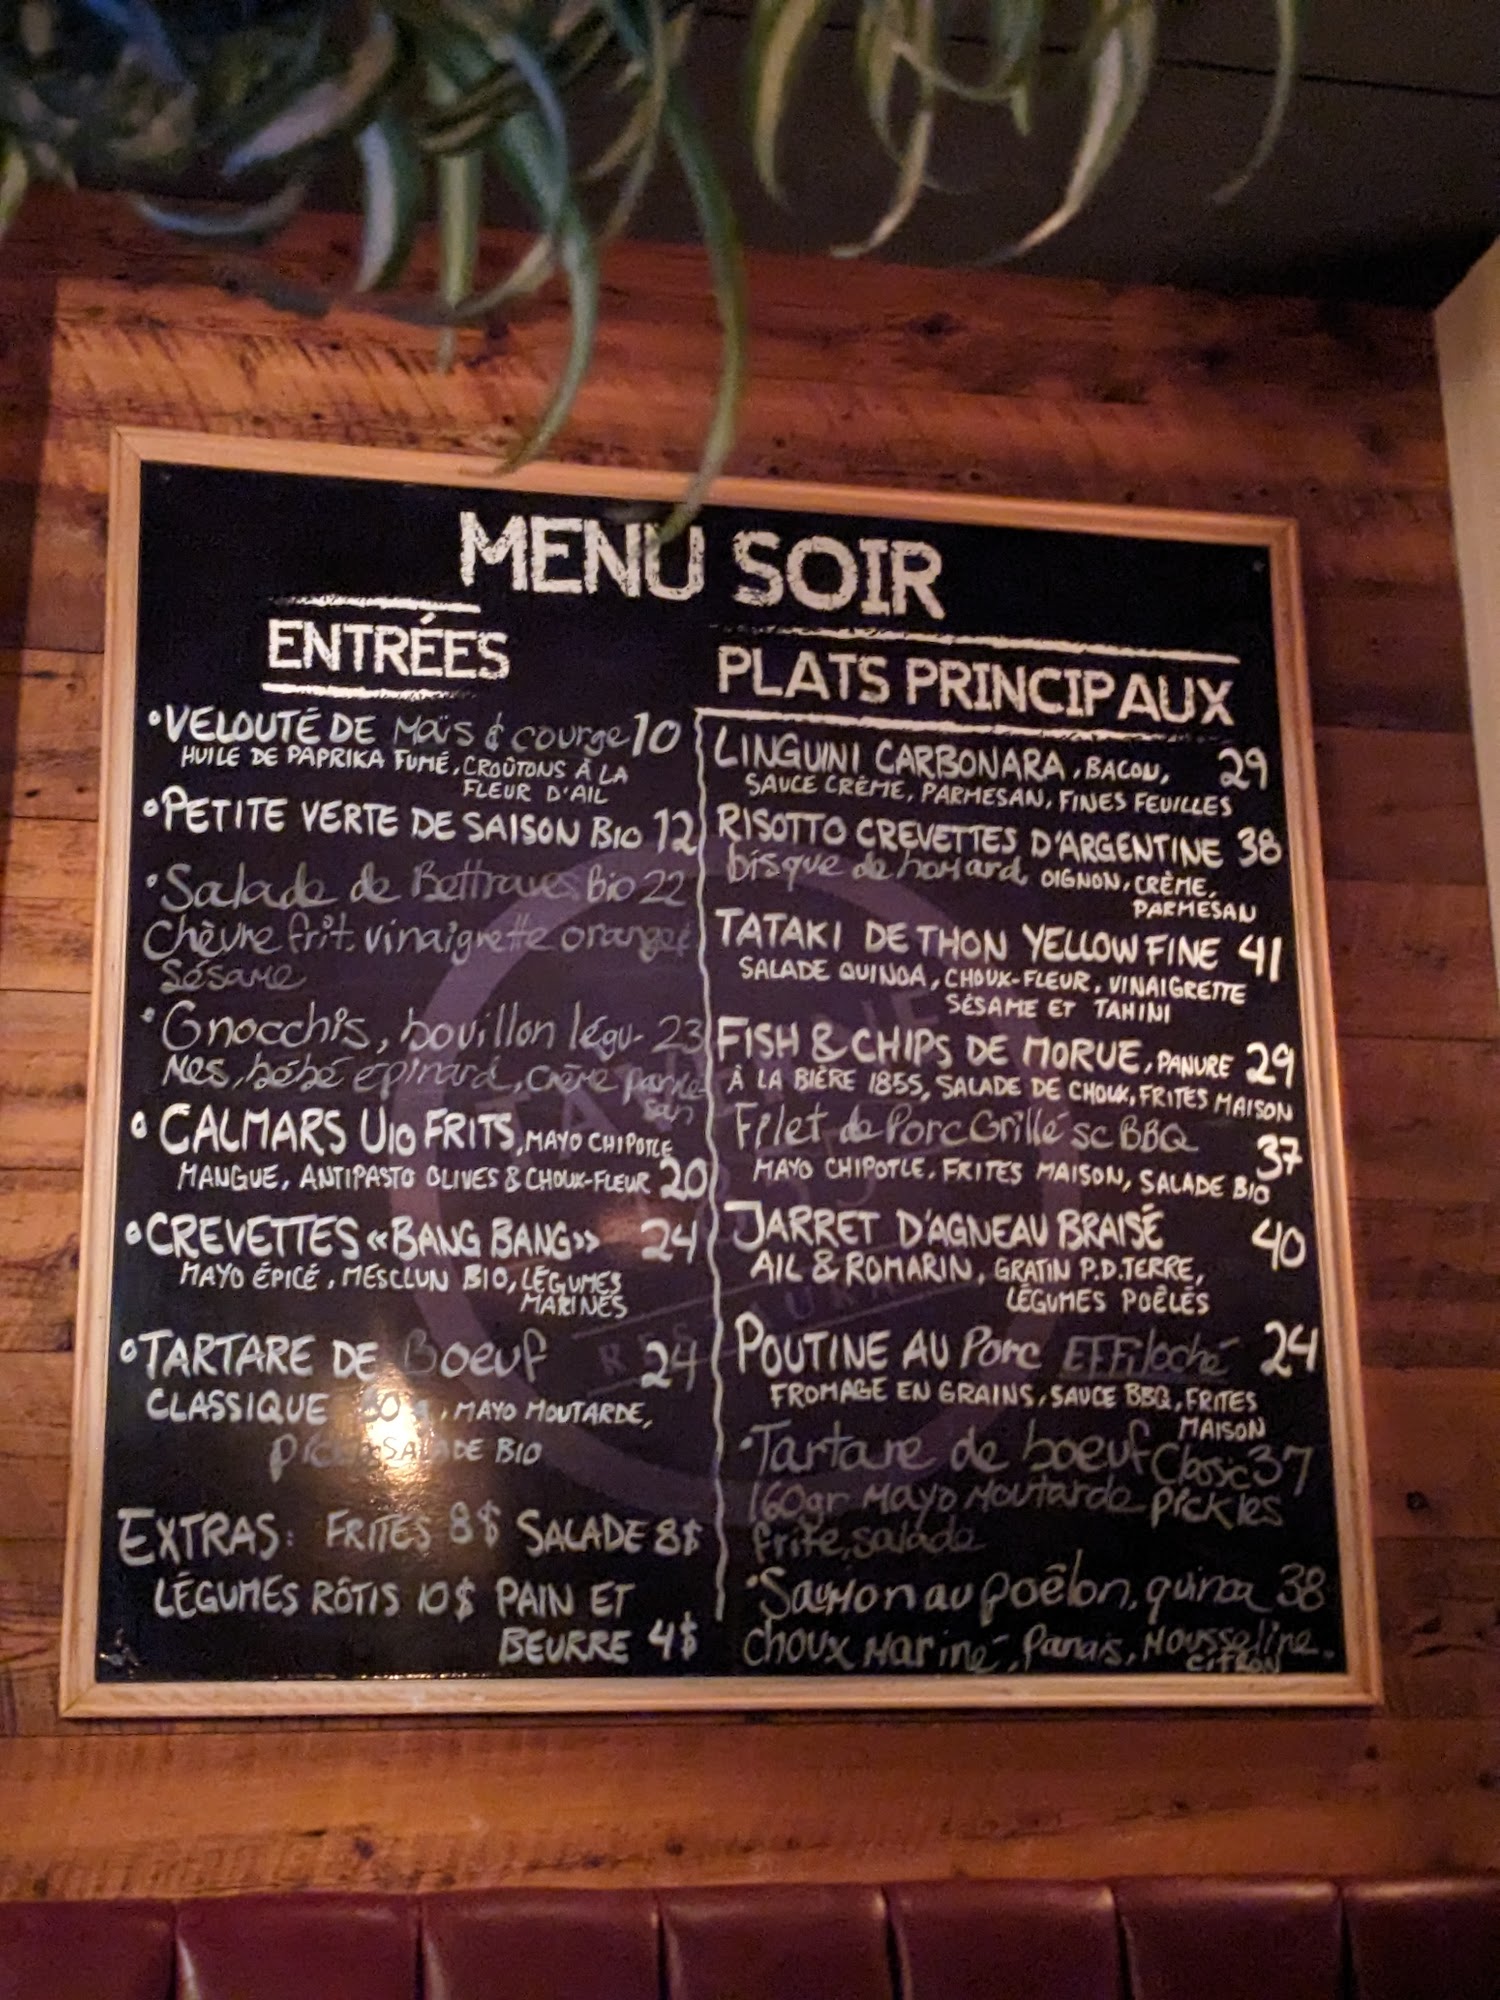 MENU SOIR
ENTRÉES
•VELOUTÉ DE Maïs & courge 10
HUILE DE PAPRIKA FUMÉ, CROÛTONS À LA
FLEUR D'AIL
•PETITE VERTE DE SAISON BIO 12
•Salade de Bettraves Bio 22
Chèvre frit, vinaigrette orange &
Sésame
•Gnocchis, bouillon légu- 23
mes, bébé épinard, crème parme
san
•CALMARS U10 FRITS, MAYO CHIPOTLE
MANGUE, ANTIPASTO OLIVES & CHOUX-FLEUR 20
•CREVETTES «BANG BANG» 24
MAYO ÉPICÉ, MESCLUN BIO, LÉGUMES
MARINÉS
•TARTARE DE Boeuf 24
CLASSIQUE , MAYO MOUTARDE,
SALADE BIO
EXTRAS: FRITES 8$ SALADE 8$
LÉGUMES RÔTIS 10$ PAIN ET
BEURRE 4$
PLATS PRINCIPAUX
LINGUINI CARBONARA, BACON, 29
SAUCE CRÈME, PARMESAN, FINES FEUILLES
RISOTTO CREVETTES D'ARGENTINE 38
bisque de homard, OIGNON, CRÈME,
PARMESAN
TATAKI DE THON YELLOW FINE 41
SALADE QUINOA, CHOUX-FLEUR, VINAIGRETTE
SÉSAME ET TAHINI
FISH & CHIPS DE MORUE, PANURE 29
À LA BIÈRE 1855, SALADE DE CHOUX, FRITES MAISON
Filet de Porc Grillé sc BBQ
37
MAYO CHIPOTLE, FRITES MAISON, SALADE BIO
JARRET D'AGNEAU BRAISÉ 40
AIL & ROMARIN, GRATIN P.D.TERRE,
LÉGUMES POÊLÉS
POUTINE AU Porc EFFiloché 24
FROMAGE EN GRAINS, SAUCE BBQ, FRITES
MAISON
•Tartare de boeuf Classic 37
160gr Mayo Moutarde pickles
frite, salade
•Saumon au poêlon, quinoa 38
choux mariné, Panais, Mousseline
CITRON